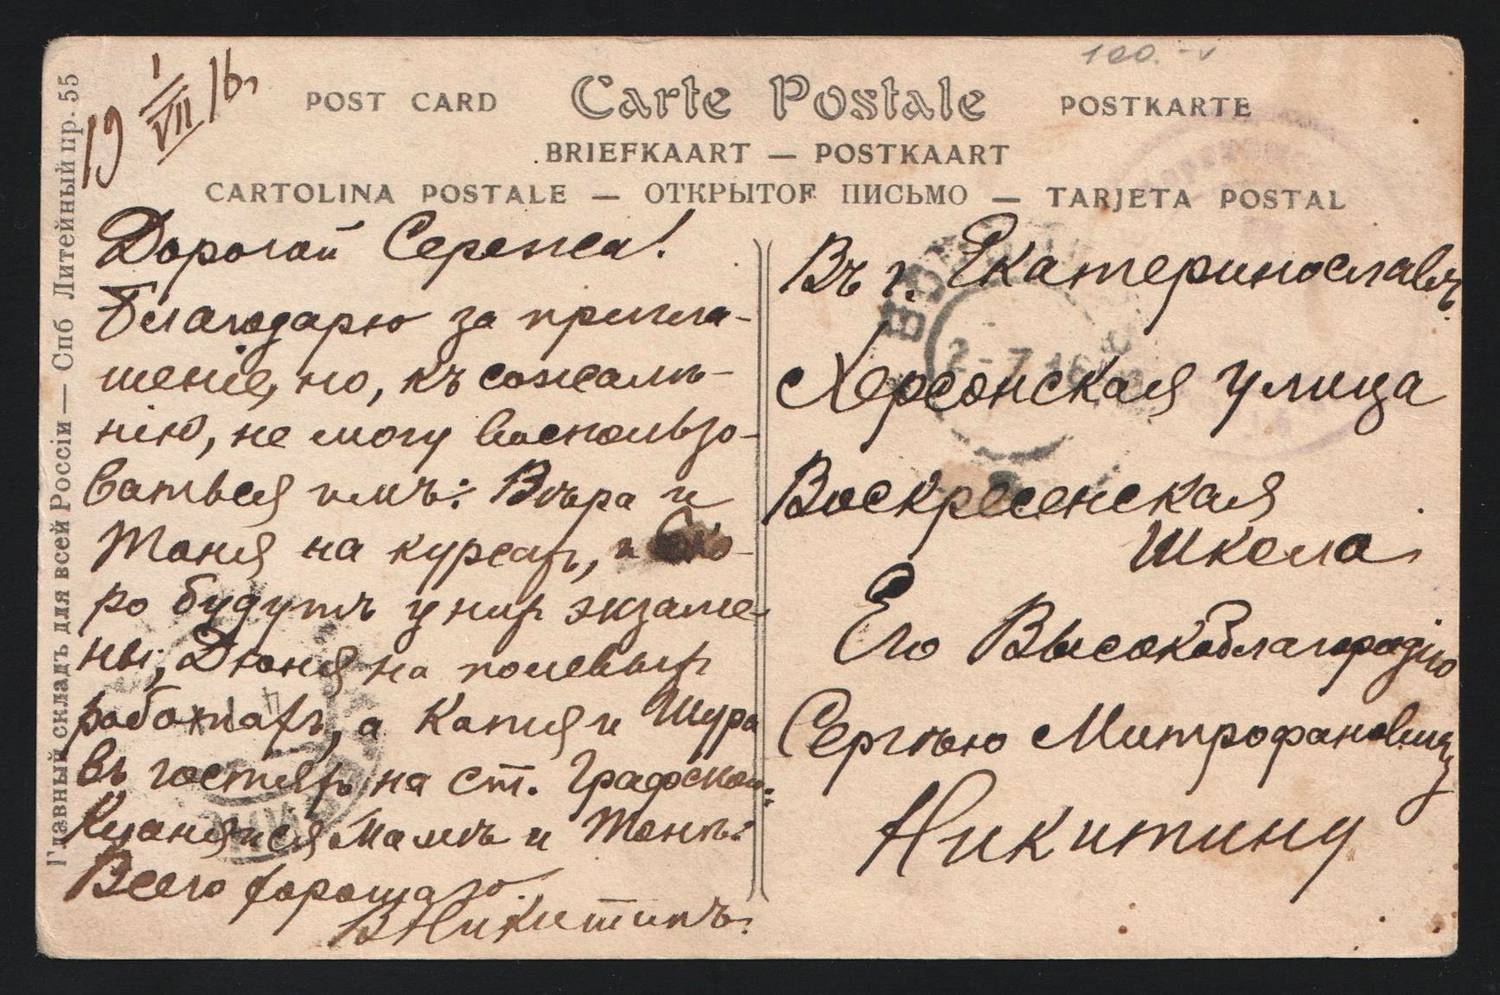 19 1/VII 16 г.
100.-
POST CARD Carte Postale POSTKARTE
BRIEFKAART — POSTKAART
CARTOLINA POSTALE — ОТКРЫТОЕ ПИСЬМО — TARJETA POSTAL
Главный складъ для всей Россіи — Спб Литейный пр. 55
Дорогой Сережа!
Благодарю за пригла-
шеніе, но, къ сожалѣ-
нію, не могу воспользо-
ваться имъ: Вѣра и
Таня на курсахъ, и Ско-
ро будутъ у нихъ экзаме-
ны, Дюня на полевыхъ
работахъ, а Катя и Шура
въ гостяхъ на ст. Графской.
Кланяйся Мамѣ и Тонѣ.
Всего хорошаго.
ВНикитинъ.
Въ г. Екатеринославъ
Херсонская улица
Воскресенская
Школа
Его Высокоблагородію
Сергѣю Митрофановичу
Никитину
2-7 16